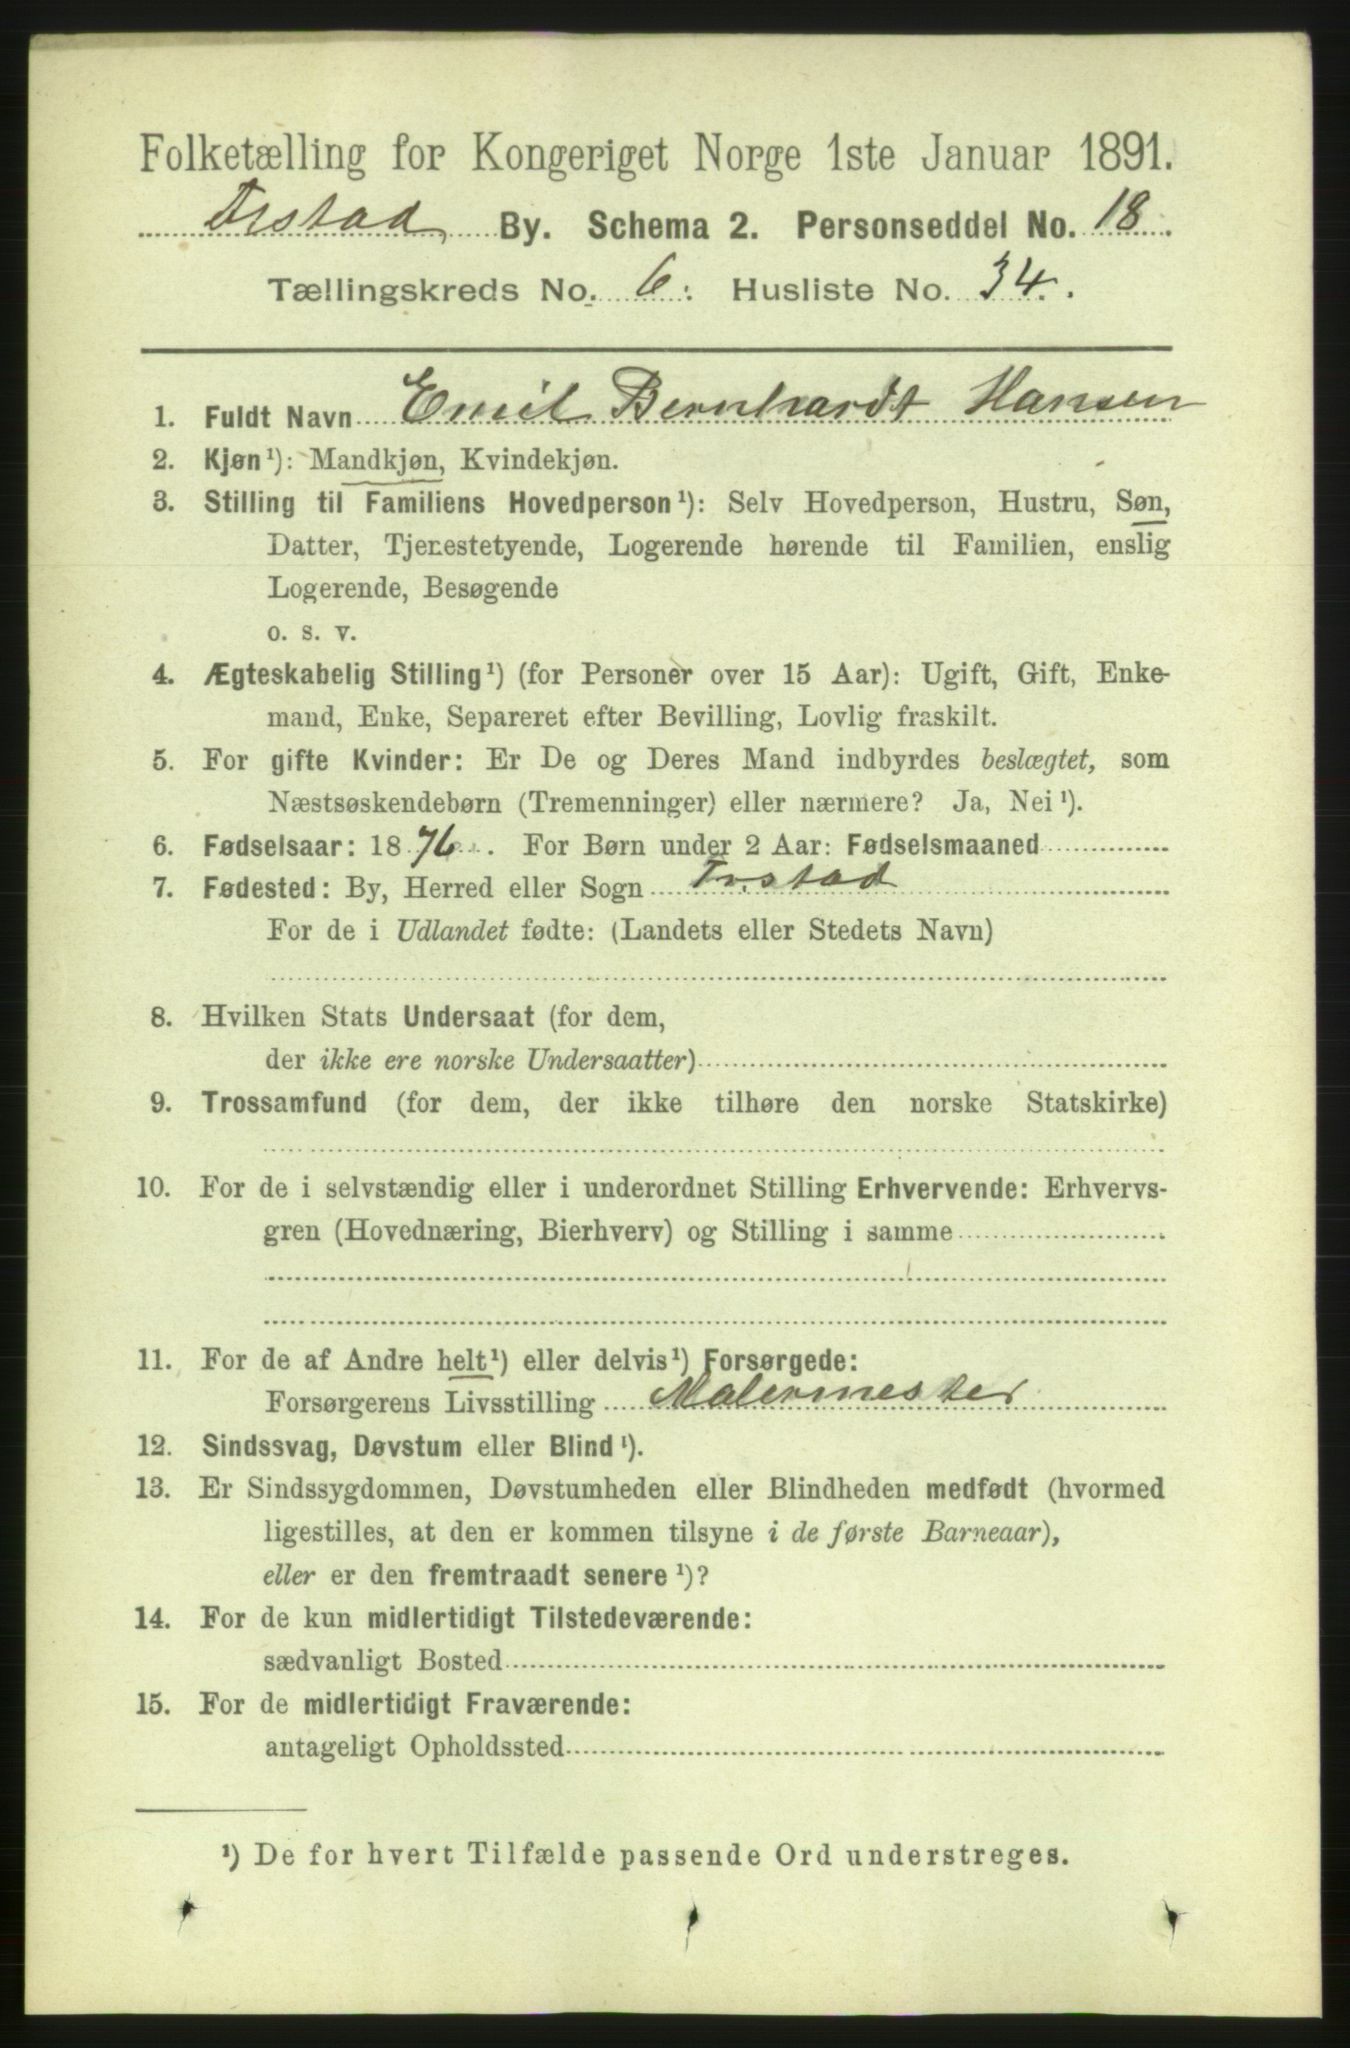 Folketælling for Kongeriget Norge 1ste Januar 1891.
Frstad By. Schema 2. Personseddel No. 18.
Tællingskreds No. 6. Husliste No. 34.
1. Fuldt Navn Emil Bernhardt Hansen
2. Kjøn¹): Mandkjøn, Kvindekjøn.
3. Stilling til Familiens Hovedperson¹): Selv Hovedperson, Hustru, Søn,
Datter, Tjenestetyende, Logerende hørende til Familien, enslig
Logerende, Besøgende
o. s. v.
4. Ægteskabelig Stilling¹) (for Personer over 15 Aar): Ugift, Gift, Enke-
mand, Enke, Separeret efter Bevilling, Lovlig fraskilt.
5. For gifte Kvinder: Er De og Deres Mand indbyrdes beslægtet, som
Næstsøskendebørn (Tremenninger) eller nærmere? Ja, Nei¹).
6. Fødselsaar: 1876. For Børn under 2 Aar: Fødselsmaaned
7. Fødested: By, Herred eller Sogn Frstad
For de i Udlandet fødte: (Landets eller Stedets Navn)
8. Hvilken Stats Undersaat (for dem,
der ikke ere norske Undersaatter)
9. Trossamfund (for dem, der ikke tilhøre den norske Statskirke)
10. For de i selvstændig eller i underordnet Stilling Erhvervende: Erhvervs-
gren (Hovednæring, Bierhverv) og Stilling i samme
11. For de af Andre helt¹) eller delvis¹) Forsørgede:
Forsørgerens Livsstilling Malermester
12. Sindssvag, Døvstum eller Blind¹).
13. Er Sindssygdommen, Døvstumheden eller Blindheden medfødt (hvormed
ligestilles, at den er kommen tilsyne i de første Barneaar),
eller er den fremtraadt senere¹)?
14. For de kun midlertidigt Tilstedeværende:
sædvanligt Bosted
15. For de midlertidigt Fraværende:
antageligt Opholdssted
¹) De for hvert Tilfælde passende Ord understreges.